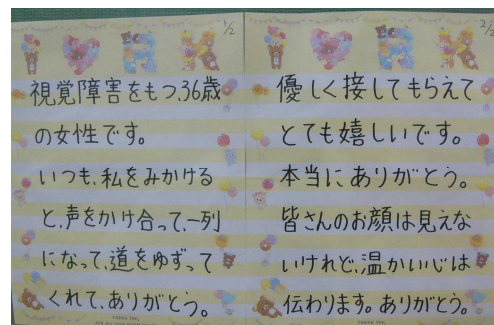 1/2
視覚障害をもつ、36歳
の女性です。
いつも、私をみかける
と、声をかけ合って、一列
になって、道をゆずって
くれて、ありがとう。
2/2
優しく接してもらえて
とても嬉しいです。
本当に、ありがとう。
皆さんのお顔は見えな
いけれど、温かい心は
伝わります。ありがとう。